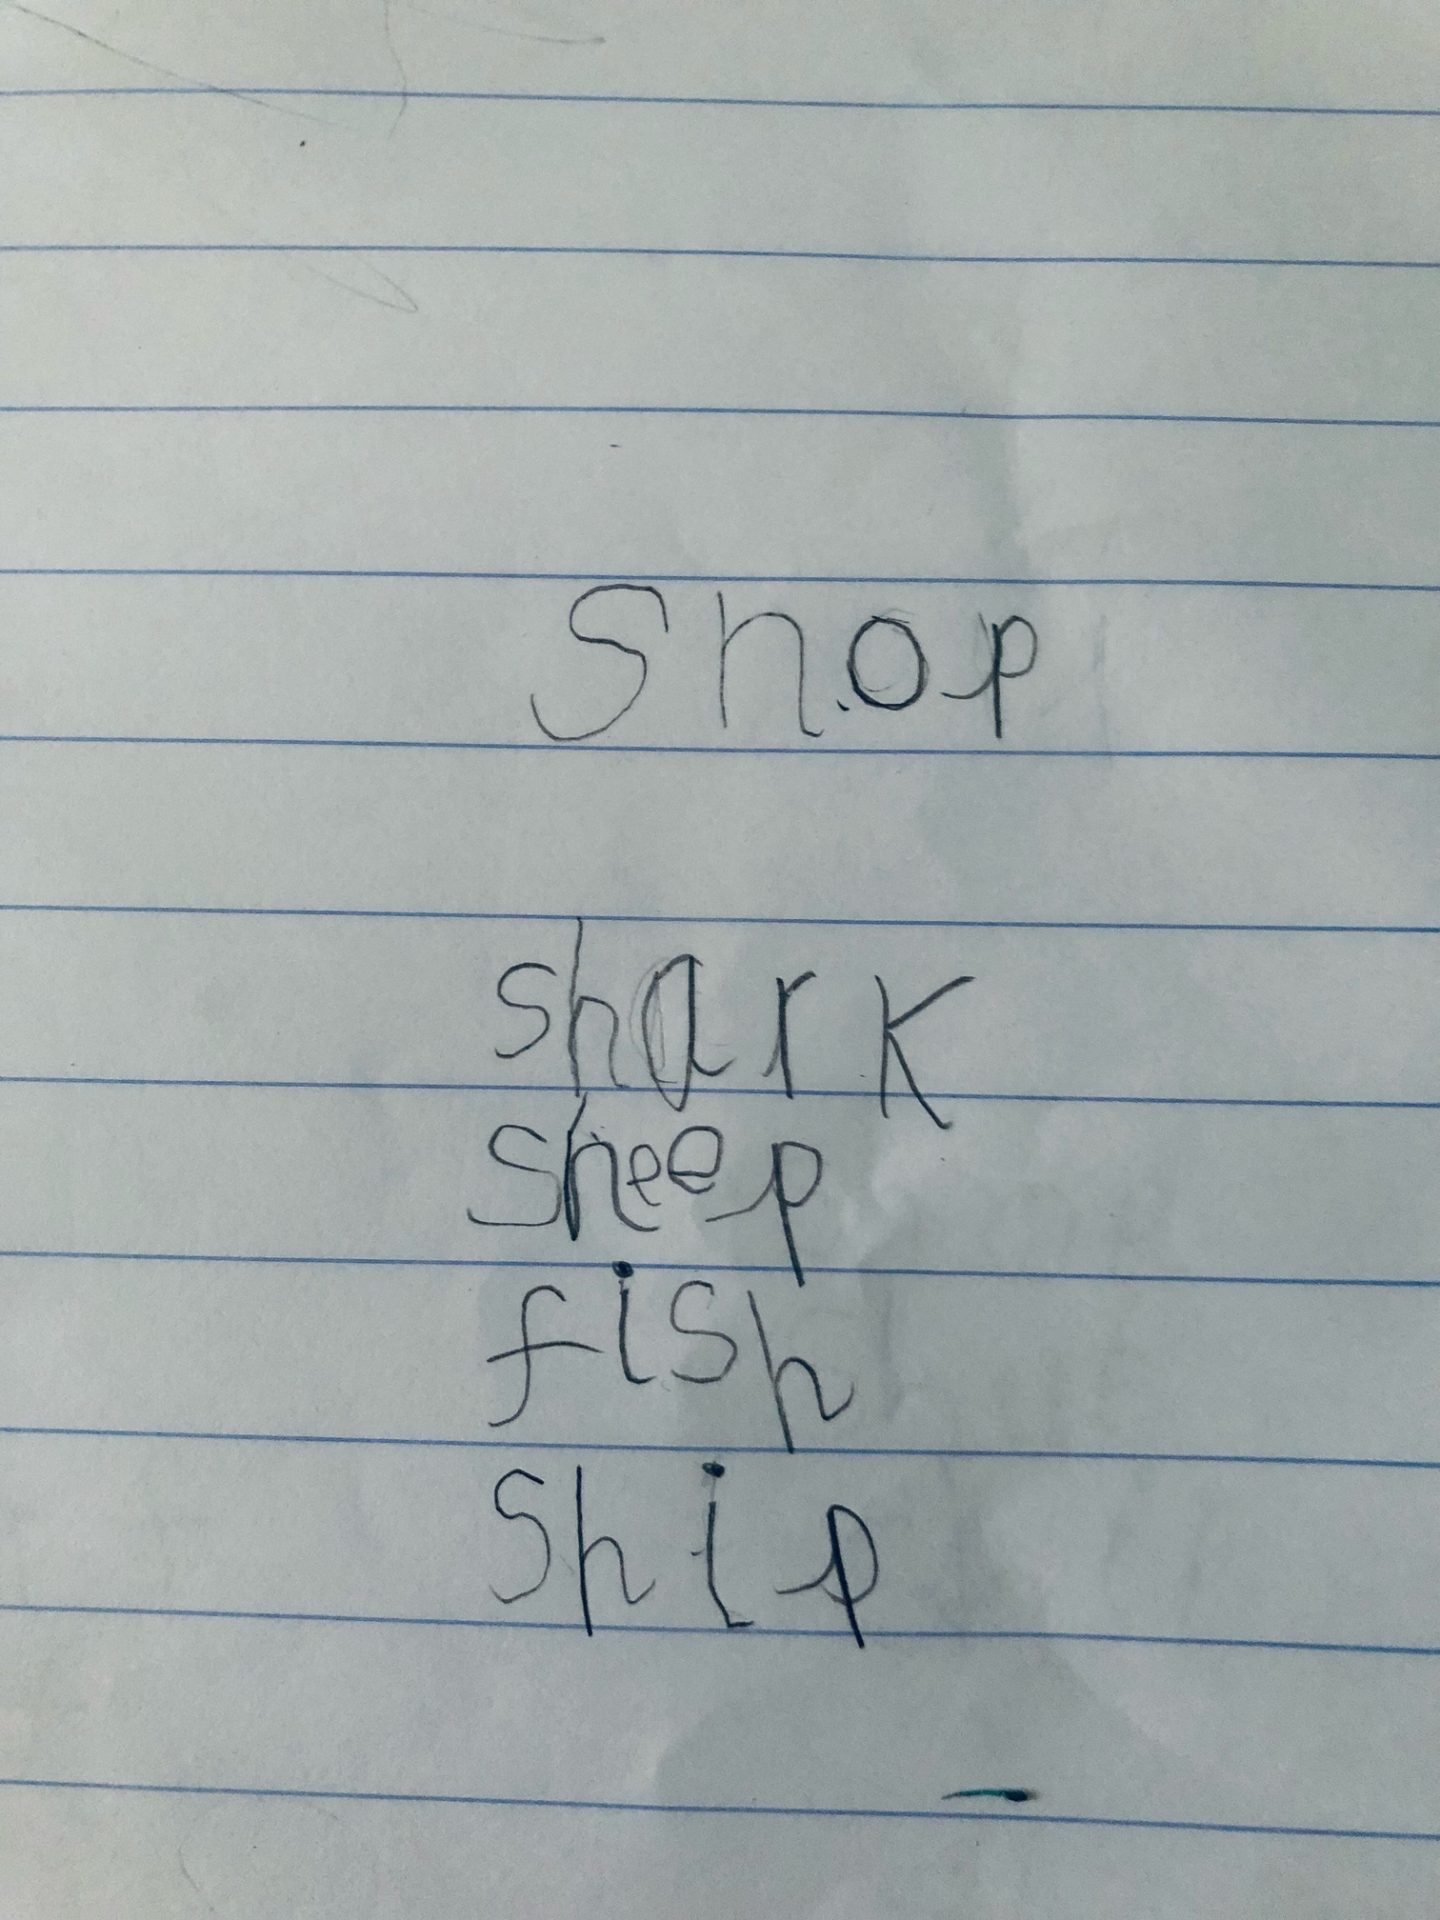 Shop
shark
sheep
fish
Ship